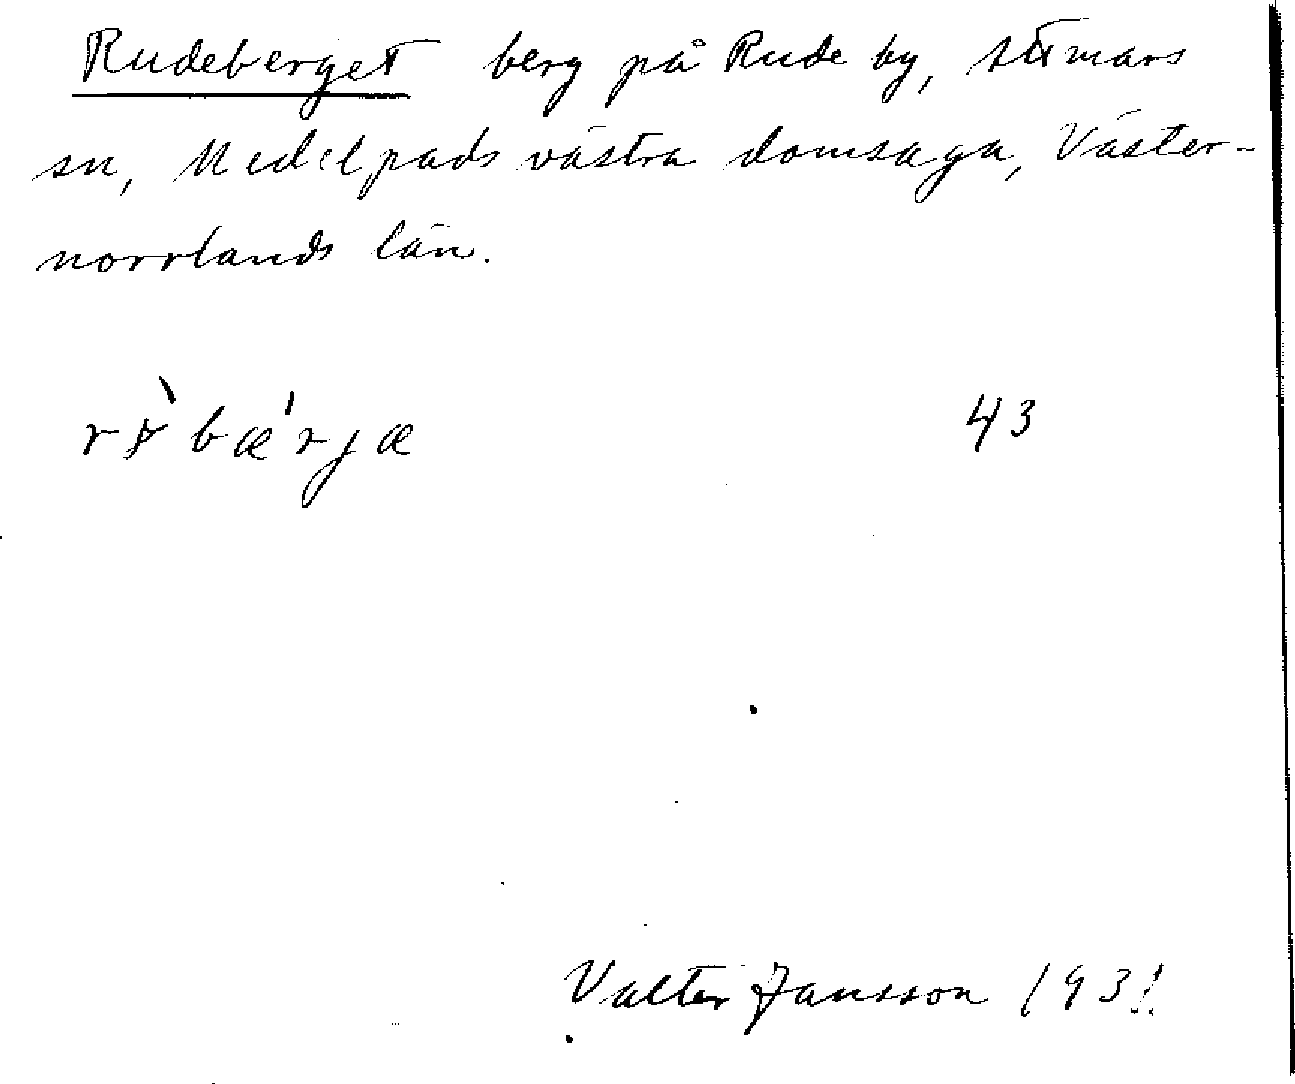 Rudeberget berg på Rude by, Attmars
sn, Medelpads västra domsaga, Väster-
norrlands län.
bæ'rjæ 43
Valter Jansson 193